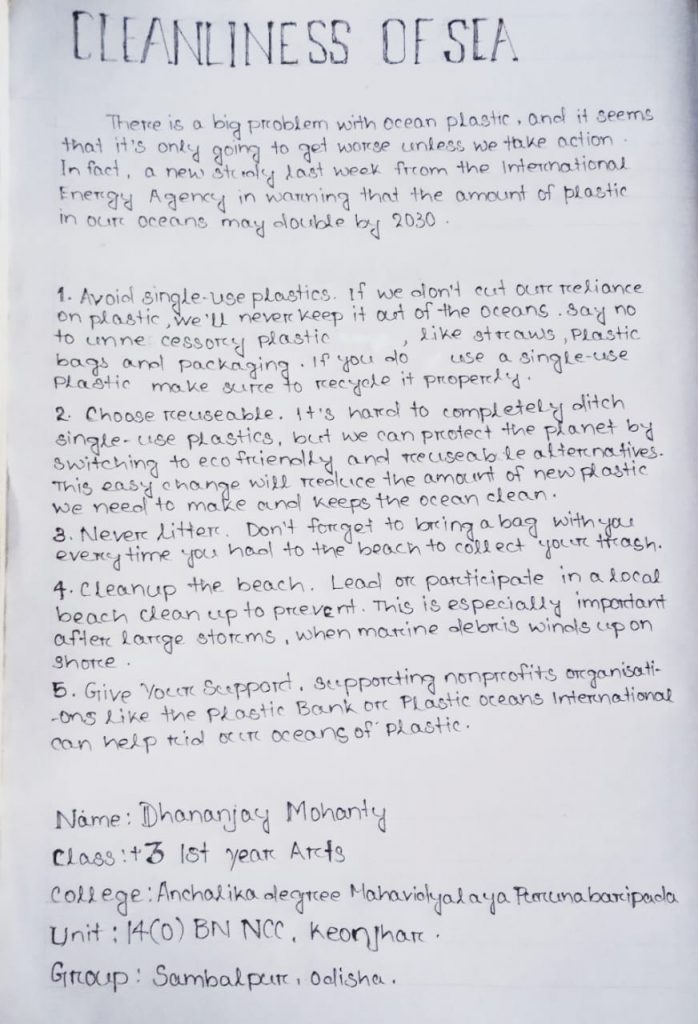 CLEANLINESS OF SEA
There is a big problem with ocean plastic, and it seems
that it's only going to get worse unless we take action.
In fact, a new study last week from the International
Energy Agency in warning that the amount of plastic
in our oceans may double by 2030.
1. Avoid single-use plastics. If we don't cut our reliance
on plastic, we'll never keep it out of the oceans. say no
to unne cessory plastic , like straws, Plastic
bags and packaging. If you do use a single-use
Plastic make sure to recycle it properly.
2. Choose reuseable. It's hard to completely ditch
single-use plastics, but we can protect the planet by
switching to eco friendly and reuseable alternatives.
This easy change will reduce the amount of new plastic
we need to make and keeps the ocean clean.
3. Never litter. Don't forget to bring a bag with you
every time you had to the beach to collect your trash.
4. Cleanup the beach. Lead or participate in a local
beach clean up to prevent. This is especially important
after large storms, when marine debris winds up on
shore.
5. Give Your Support. supporting nonprofits organisati-
-ons like the Plastic Bank or Plastic oceans International
can help rid our oceans of plastic.
Name: Dhananjay Mohanty
Class: +3 1st year Arts
College: Anchalika degree Mahavidyalaya Purunabaripada
Unit: 14(O) BN NCC, Keonjhar.
Group: Sambalpur, Odisha.